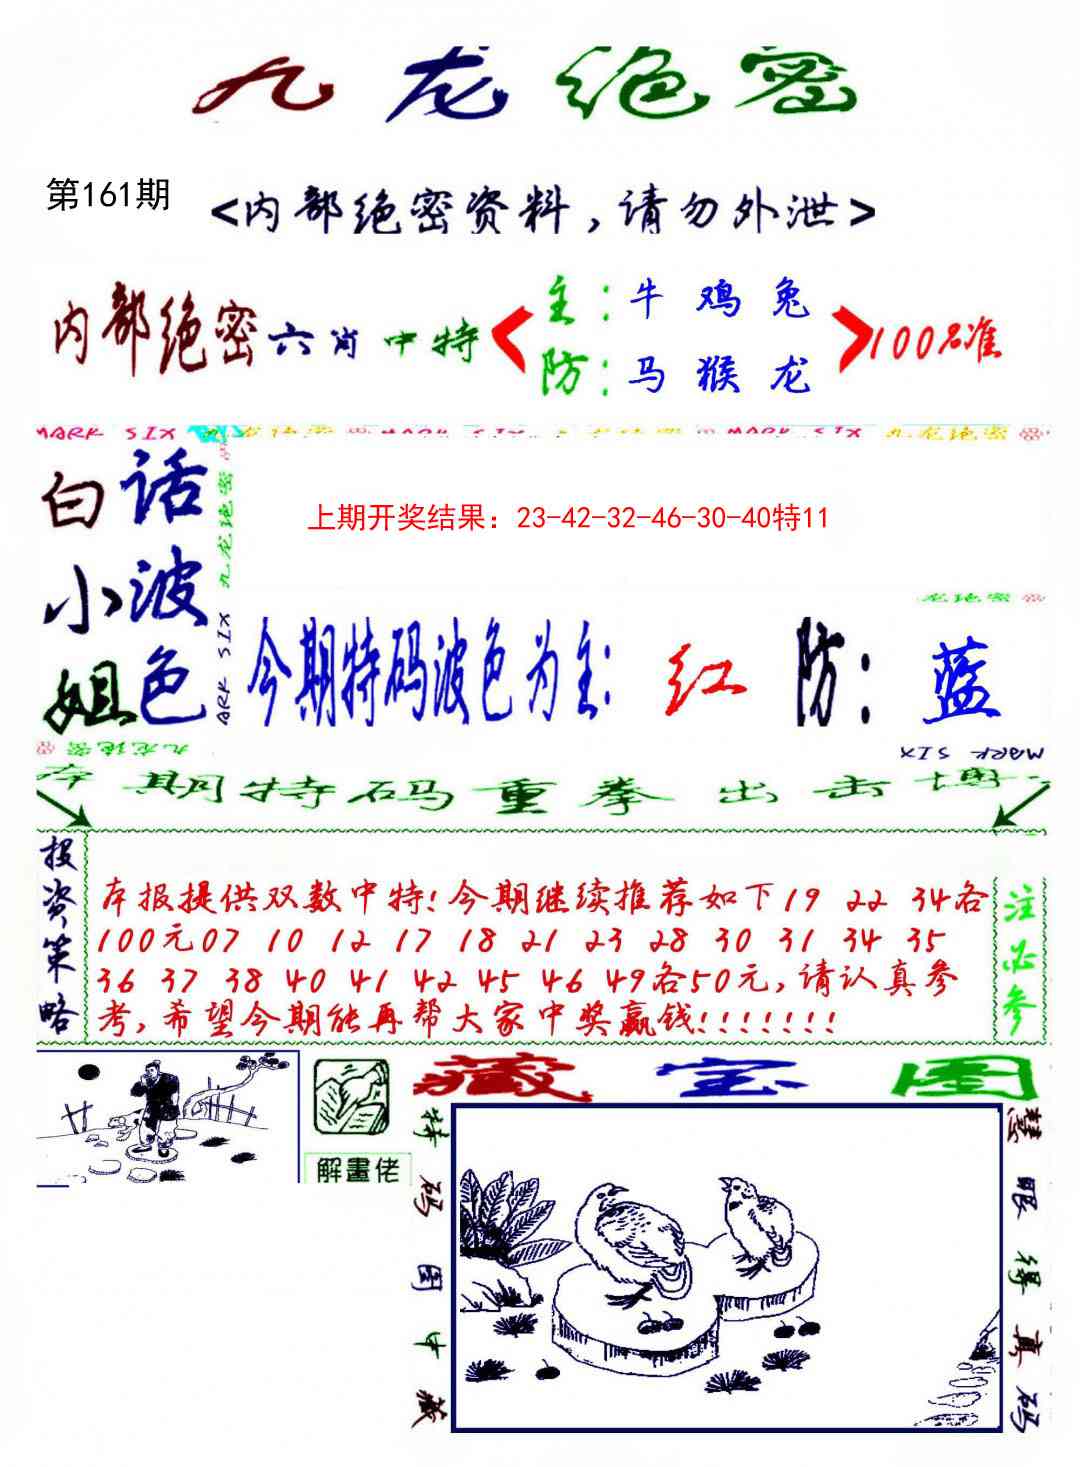 九龙绝密
第161期
<内部绝密资料,请勿外泄>
内部绝密六肖中特
主:牛 鸡 兔
防:马 猴 龙
100%准
MARK SIX 九龙绝密 MARK SIX 九龙绝密 MARK SIX 九龙绝密
白小姐
话波色
九龙绝密
MARK SIX
上期开奖结果：23-42-32-46-30-40特11
九龙绝密
今期特码波色为主: 红 防: 蓝
九龙绝密
MARK SIX
本期特码重拳出击博
投资策略
本报提供双数中特!今期继续推荐如下19 22 34各
100元07 10 12 17 18 21 23 28 30 31 34 35
36 37 38 40 41 42 45 46 49各50元,请认真参
考,希望今期能再帮大家中奖赢钱!!!!!!!
注必参
解畫佬
藏宝图
特码图中藏
慧眼得真码